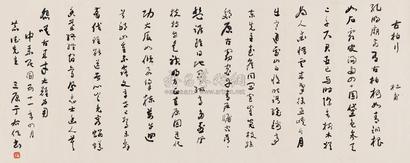 古柏行 杜甫
孔明廟前有古柏柯如青銅根
如石霜皮溜雨四十圍黛色參天
二千尺君臣已與時際會樹木猶
為人愛惜雲來氣接巫峽長月
出寒通雪山白憶昨路繞錦亭
東先主武侯同閟宮崔嵬枝幹
郊原古窈窕丹青戶牖空落落
盤踞雖得地冥冥孤高多烈風
扶持自是神明力正直原因造化
功大廈如傾要梁棟萬牛回
首丘山重不露文章世已驚未辭
翦伐誰能送苦心豈免容螻蟻
香葉終經宿鸞鳳志士幽人莫
怨嗟古來材大難為用
中華民國
先生 三原于右任